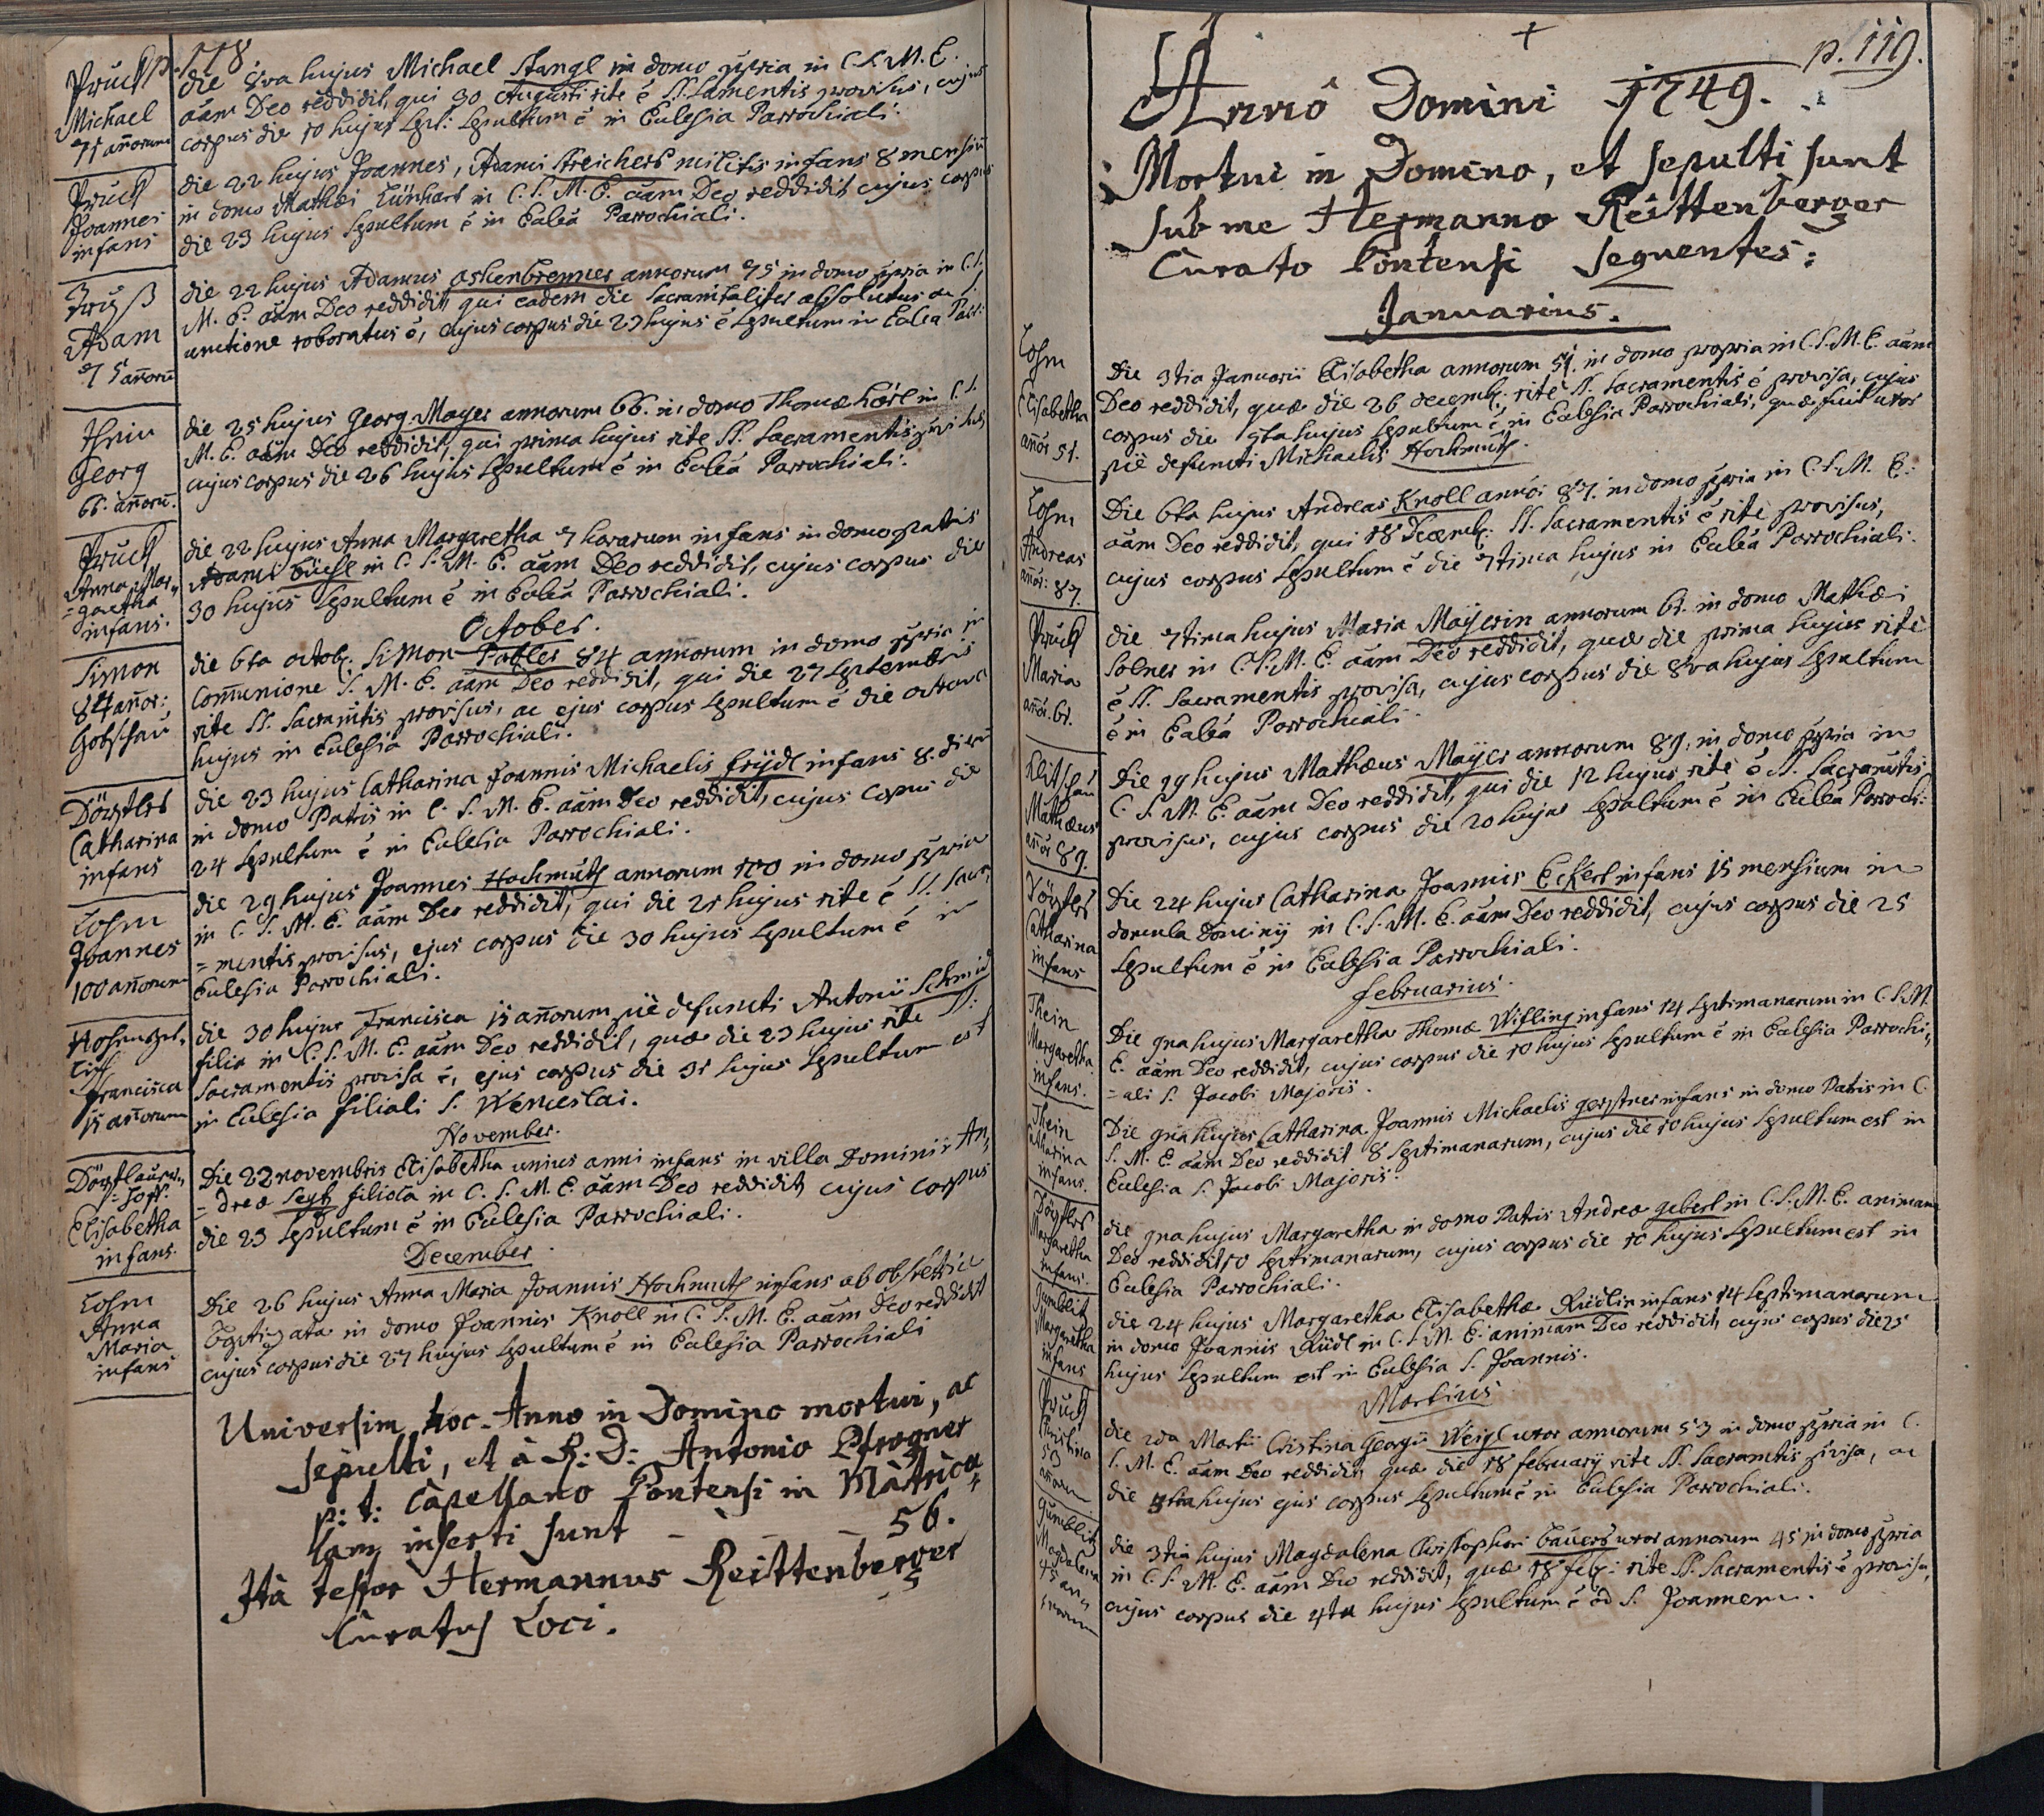 p. 118
Pruck
Michael
71 añorum
die 8va hujus Michael Stangl in domo ppria in C. S. M. E.
aãm Deo reddidit, qui 30 Augusti rite é SS. Samentis provisus, cujus
corpus die 10 hujus Sept: sepultum é in Eclesia Parrochiali.
Pruck
Joannes
infans
die 22 hujus Joannes, Adami Streicherß militis infans 8 mensiũ
in domo Mathæi Lünhart in C. S. M. E. aãm Deo reddidit cujus corpus
die 23 hujus sepultum é in Eclẽa Parrochiali.
Adam
75 añorũ
die 22 hujus Adamus Ashenbrenner annorum 75 in domo ppria in C. S.
M. E. aãm Deo reddidit, qui eadem die sacramtaliter absolutus ac S.
unctione roboratus é, cujus corpus die 23 hujus é sepultum in Eclẽa Parr:
Thein
Georg
66. añorũ.
die 25 hujus Georg Mayer annorum 66. in domo Thomæ Hörl in C. S.
M. E. aãm Deo reddidit, qui prima hujus rite SS. Sacramentis pvisus
cujus corpus die 26 hujus sepultum é in Eclẽa Parrochiali.
Pruck
Anna Mar„
=garetha
infans.
die 22 hujus Anna Margaretha 7 horarum infans in domo patris
Adami Füchsl in C. S. M. E. aãm Deo reddidit, cujus corpus die
30 hujus sepultum é in Eclẽa Parrochiali.
October.
Simon
84 añor:
Gotschau
die 6ta octob: Simon Pabler 84 annorum in domo ppria in
Com̃unione S. M. E. aãm Deo reddidit, qui die 27 Septembris
rite SS. Sacram̃tis provisus, ac ejus corpus sepultum é die octava
hujus in Eclesia Parrochiali.
Dörfles
Catharina
infans
die 23 hujus Catharina Joannis Michaelis Frÿdl infans 8. dierũ
in domo Patris in C. S. M. E. aãm Deo reddidit, cujus copus die
24 sepultum é in Eclesia Parrochiali.
Lohm
Joannes
100 añorum
die 29 hujus Joannes Hochmuth annorum 100 in domo ppria
in C. S. M. E. aãm Deo reddidit, qui die 21 hujus rite é SS. Sacra
=mentis provisus, ejus corpus die 30 hujus sepultum é in
Eclesia Parrochiali.
Francisca
15 añorum
die 30 hujus Francisca 15 añorum piè defuncti Antonii Schmid
filia in C. S. M. E. aãm Deo reddidit, quæ die 23 hujus rite SS:
Sacramentis provisa é, ejus corpus die 31 hujus sepultum est
in Eclesia filiali S. Wenceslai.
November.
Elisabetha
infans.
Die 22 novembris Elisabetha unius anni infans in villa Dominii An„
=dreæ Seytz filiola in C. S. M. E. aãm Deo reddidit, cujus corpus
die 23 sepultum é in Eclesia Parrochiali.
December.
Lohm
Anna
Maria
infans
Die 26 hujus Anna Maria Joannis Hochmuth infans ab obstetrice
Bãptigata in domo Joannis Knoll in C. S. M. E. aãm Deo reddidit
cujus corpus die 27 hujus sepultum é in Eclesia Parrochiali
Universim hoc Anno in Domino mortui, ac
sepulti, et à R: D: Antonio Pfrogner
p: t: Capellano Pontensi in Matricu
lam inserti sunt _ _ _ 56.
Ità testor Hermannus Reittenberger
Curatus Loci.
p. 119.
Annô Domini 1749.
Mortui in Domino, et sepulti sunt
sub me Hermanno Reittenberger
Curato Pontensi sequentes:
Januarius.
Lohm
Elisabetha
añor 51.
Die 3tia Januarii Elisabetha annorum 51. in domo propria in C. S. M. E. aãm
Deo reddidit, quæ die 26 decemb: rite SS. Sacramentis é provisa, cujus
corpus die 5ta hujus sepultum é in Eclesia Parrochiali, quæ fuit uxor
piè defuncti Michaelis Hochmuth.
Lohm
Andreas
añor: 87.
Die 6ta hujus Andreas Knoll annor 87. in domo ppria in C. S. M. E.
aãm Deo reddidit, qui 18 Decemb: SS. Sacramentis é rite provisus,
cujus corpus sepultum é die 7tima hujus in Eclẽa Parrochiali.
Pruck
Maria
añor. 61.
die 7tima hujus Maria Maÿerin annorum 61. in domo Mathæi
Solner in C. S. M. E. aãm Deo reddidit, quæ die prima hujus rite
é SS. Sacramentis provisa, cujus corpus die 8va hujus sepultum
é in Eclẽa Parrochiali.
Klitschau
Mathæus
añor 89.
Die 19 hujus Mathæus Maÿer annorum 89. in domo ppria in
C. S. M. E. aãm Deo reddidit, qui die 12 hujus rite é SS. Sacram̃tis
provisus, cujus corpus die 20 hujus sepultum é in Eclẽa Parroch:
Dörfles
Catharina
infans
Die 24 hujus Catharina Joannis Eckert infans 15 mensium in
domula Dominij in C. S. M. E. aãm Deo reddidit, cujus corpus die 25
sepultum é in Eclesia Parrochiali.
februarius.
Thein
Margaretha
infans.
Die 9na hujus Margaretha Thomæ Wifling infans 14 septimanarum in C. S. M.
E. aãm Deo reddidit, cujus corpus die 10 hujus sepultum é in Eclesia Parrochi„
=ali S. Jacobi Majoris.
Thein
Catharina
infans.
Die 9na hujus Catharina Joannis Michaelis Gerstner infans in domo Patris in C.
S. M. E. aãm Deo reddidit 8 septimanarum, cujus die 10 hujus sepultum est in
Eclesia S. Jacobi Majoris.
Dörfles
Margaretha
infans.
die 9na hujus Margaretha in domo Patris Andreæ Gebert in C. S. M. E. animam
Deo reddidit 10 septimanarum, cujus corpus die 10 hujus sepultum est in
Eclesia Parrochiali.
Gumblitz
Margaretha
infans
die 24 hujus Margaretha Elisabethæ Rüdlin infans 14 septimanarum
in domo Joannis Rüdl in C. S. M. E. animam Deo reddidit, cujus copus die 25
hujus sepultum est in Eclesia S. Joannis.
Martius
Pruck
Cristina
53
añorum
die 2da Martii Cristina Georgii Weigl uxor annorum 53 in domo ppria in C.
S. M. E. aãm Deo reddidit, quæ die 18 february rite SS. Sacramtis pvisa, ac
die 4ta hujus ejus corpus sepultum é in Eclesia Parrochiali.
Gumblitz
Magdalena
45 an„
norum
die 3tia hujus Magdalena Christophori Bauerß uxor annorum 45 in domo ppria
in C. S. M. E. aãm Deo reddidit, quæ 18 feb: rite SS. Sacramentis é provisa,
cujus corpus die 4ta hujus sepultum é ad S. Joannem.